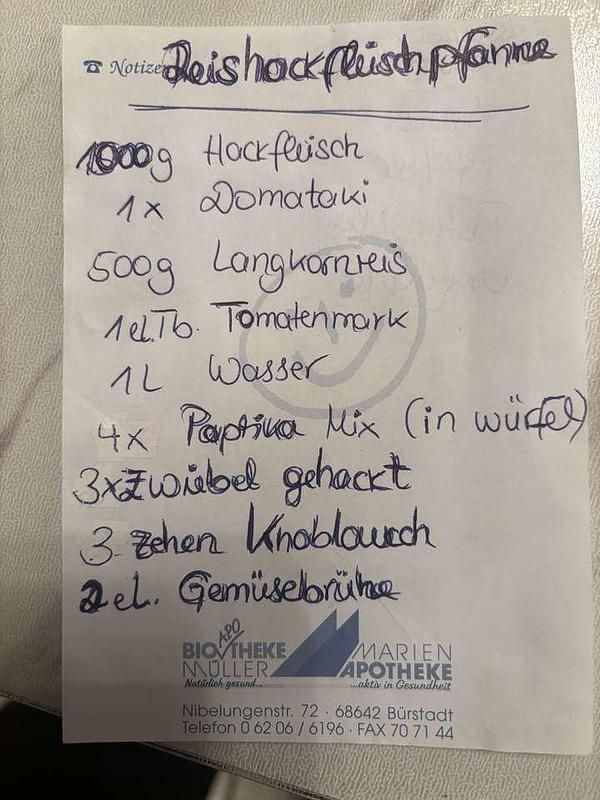 ☎ Notize Reishackfleischpfanne
1000g Hackfleisch
1x Domataki
500g Langkornreis
1 el. Tb. Tomatenmark
1L Wasser
4x Paprika Mix (in würfel)
3x Zwiebel gehackt
3 zehen Knoblauch
2 el. Gemüsebrühe
APO
BIO THEKE MARIEN
MÜLLER APOTHEKE
Natürlich gesund... ...aktiv in Gesundheit
Nibelungenstr. 72 · 68642 Bürstadt
Telefon 0 62 06 / 6196 · FAX 70 71 44